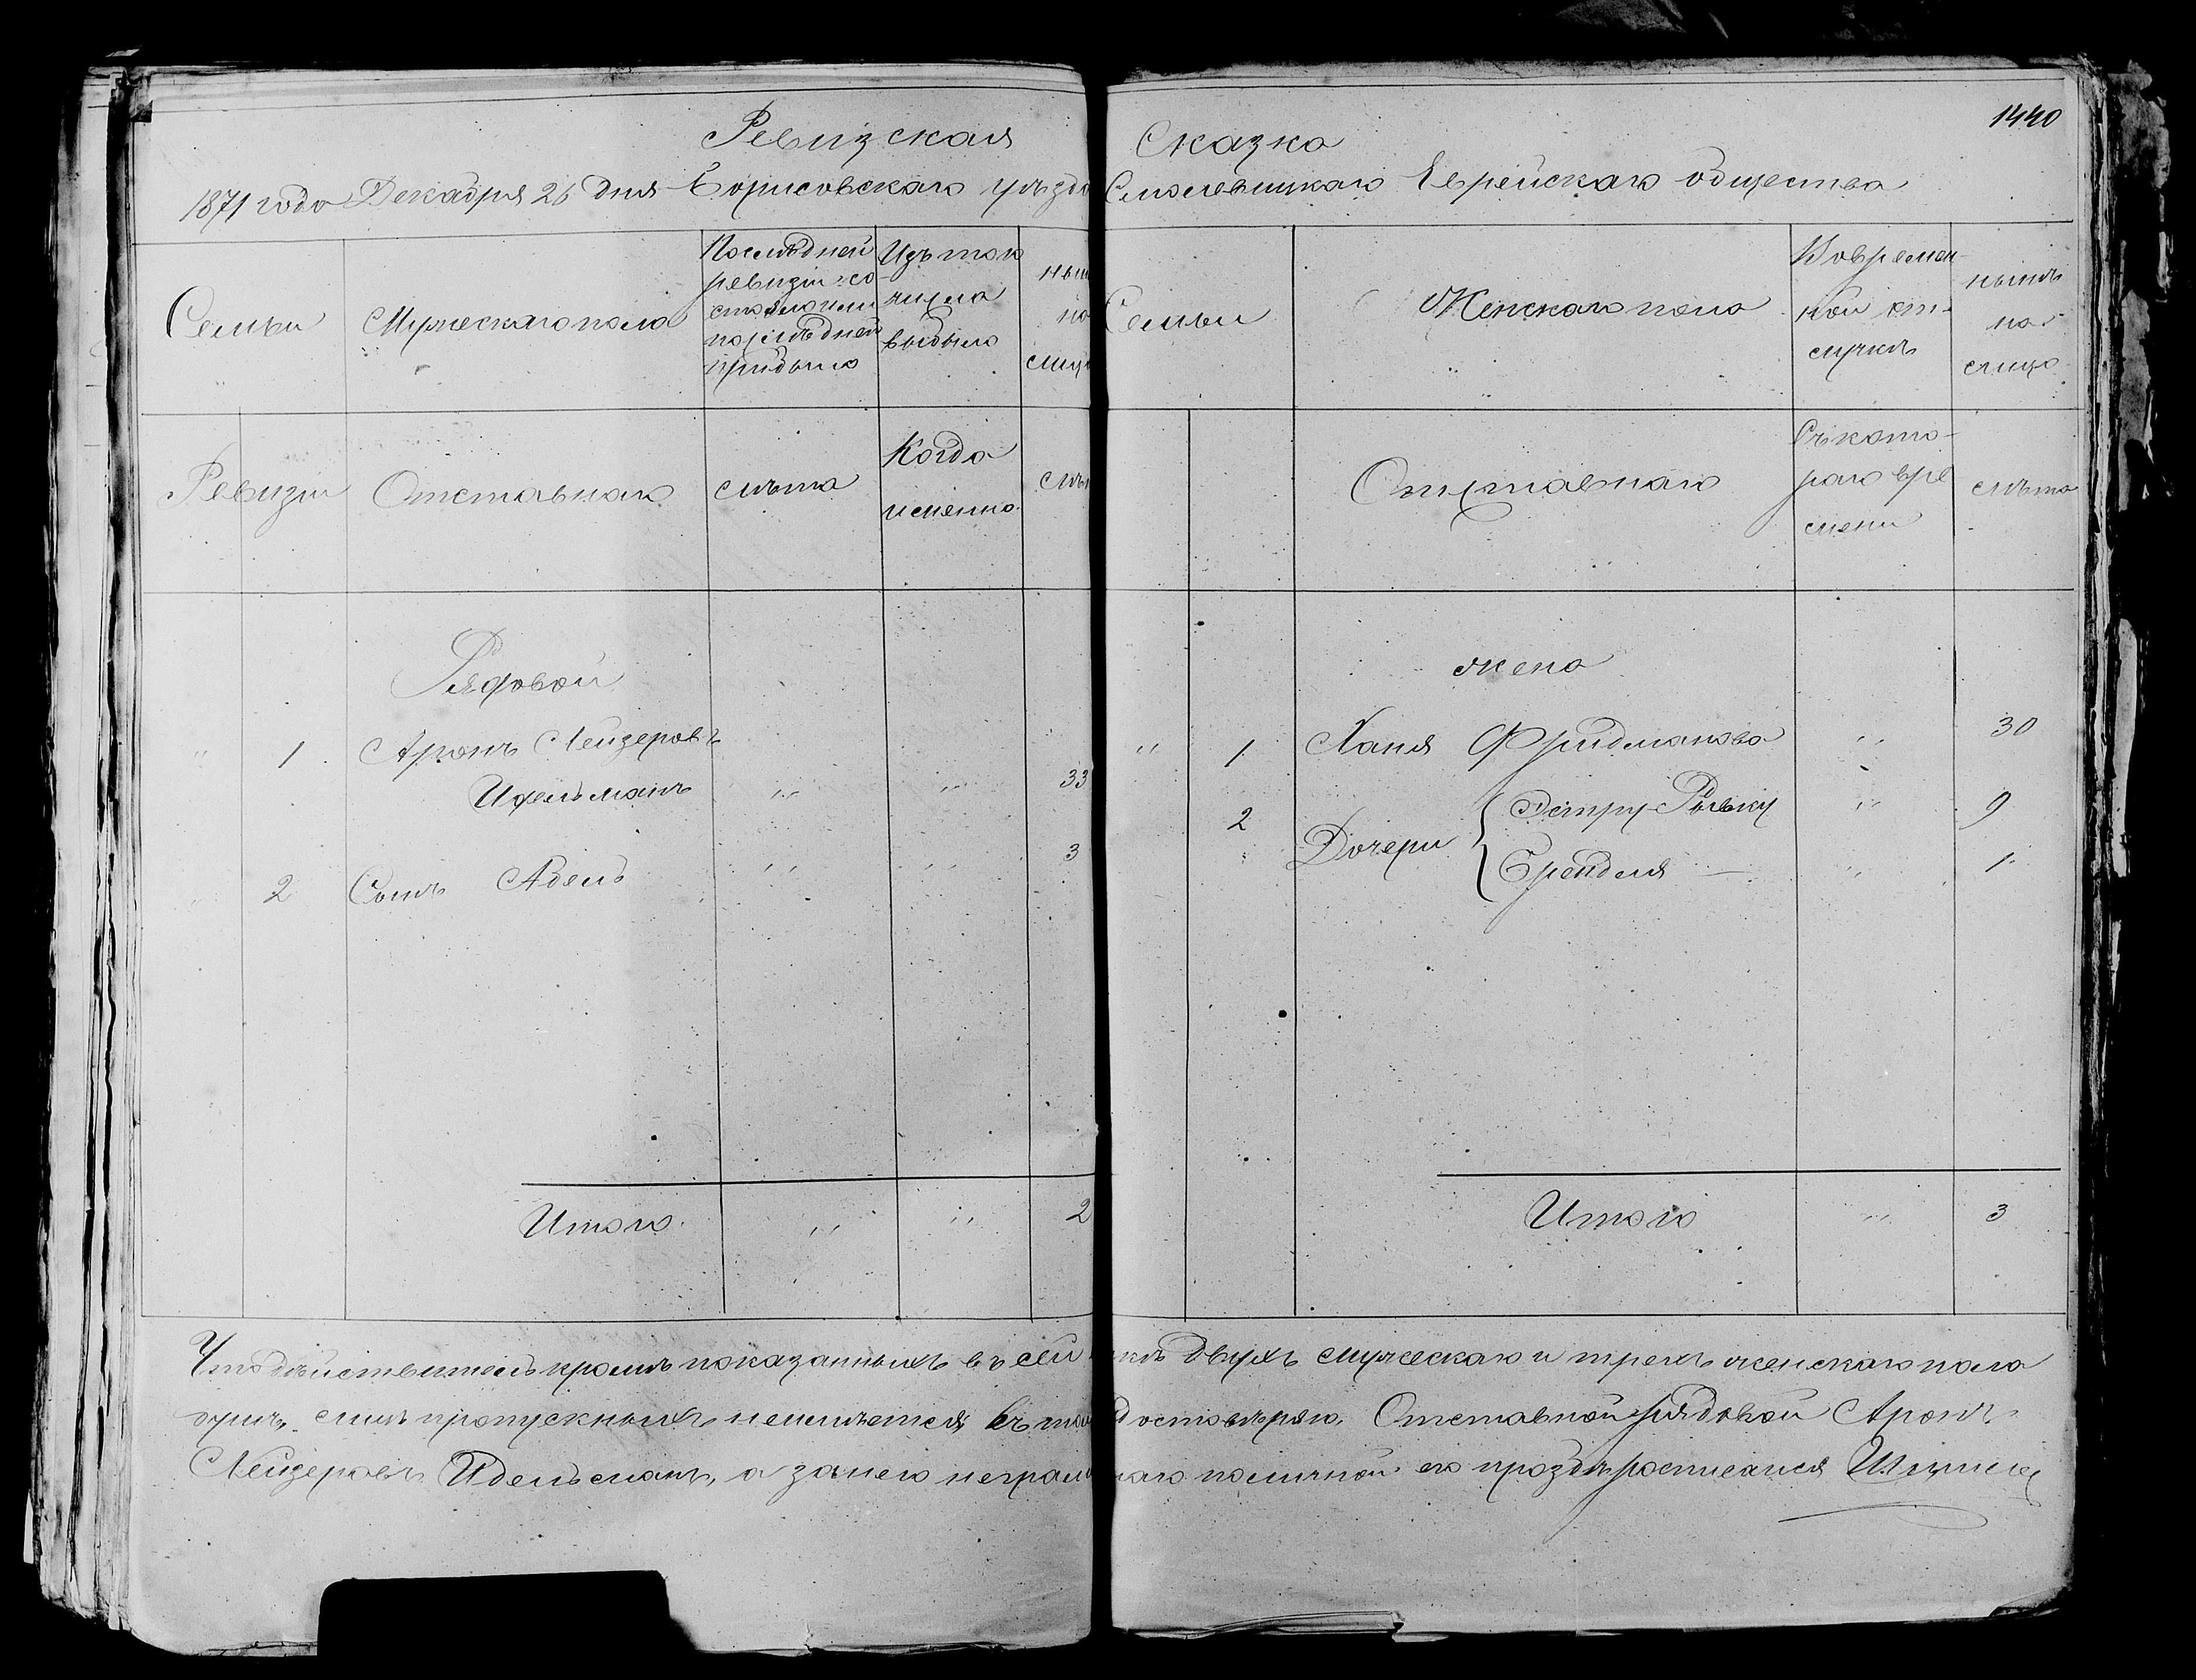 1440
Ревизская Сказка
1871 года Декабря 26 дня Борисовскаго уѣзда Смолевицкаго Еврейскаго общества
Семьи
Мужескаго пола
Послѣдней
ревизіи со
стояло или
послѣдней
прибыло
Изъ того
числа
выбыло
ны
на
лиц
Семьи
Женскаго пола
Во времен-
ной от-
лучкѣ
нынѣ
на
лицо
Ревизіи
Отставнаго
лѣта
Когда
именно
лѣ
Отставнаго
Съ кото-
раго вре
мени
лѣта
Рядовой
жена
1 Аронъ Лейзеровъ
Идельманъ " " 33
2 Сынъ Абель " " 3
" 1 Ханя Фридманова " 30
2 Дочери Эстру-Рывку " 9
Брейдля " 1
Итого " " 2
Итого " 3
Что дѣйствительно кромѣ показанныхъ въ сей кѣ двухъ мужескаго и трехъ женскаго пола
душъ, мнѣ пропускныхъ неимѣется, въ том достовѣряю. Отставной рядовой Аронъ
Лейзеровъ Идельманъ, а за него неграм наго поличной его прозбѣ росписался